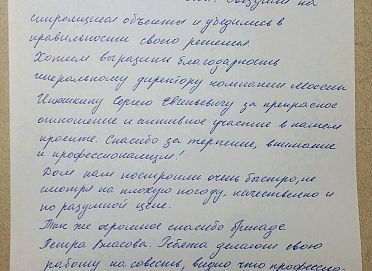 строящиеся объекты и убедились в
правильности своего решения.
Хотим выразить благодарность
генеральному директору компании
Сергею Евгеньевичу за прекрасное
отношение и активное участие в нашем
проекте. Спасибо за терпение, внимание
и профессионализм!
Дом нам построили очень быстро, не
смотря на плохую погоду, качественно и
по разумной цене.
Так же огромное спасибо бригаде
Петра Власова. Ребята делают свою
работу на совесть, видно что професси-